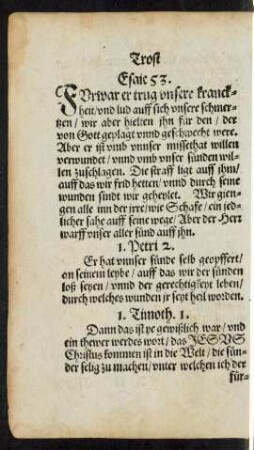 Trost
Esaie 53.
FVrwar er trug vnsere kranck-
heit/vnd lud auff sich vnsere schmer-
tzen/ wir aber hielten jhn für den/ der
von Gott geplagt vnnd geschwecht were.
Aber er ist vmb vnnser missethat willen
verwundet/ vnnd vmb vnser sünden wil-
len zuschlagen. Die straff ligt auff jhm/
auff das wir frid hetten/ vnnd durch seine
wunden sindt wir geheylet. Wir gien-
gen alle inn der jrre/ wie Schafe/ ein jed-
licher sahe auff seine wege/ Aber der Herr
warff vnser aller sünd auff jhn.
1. Petri 2.
Er hat vnnser sünde selb geopffert/
on seinem leybe/ auff das wir der sünden
loß seyen/ vnnd der gerechtigkeyt leben/
durch welches wunden jr seyt heil worden.
1. Timoth. 1.
Dann das ist ye gewißlich war/ vnd
ein thewer werdes wort/ das JESVS
Christus kommen ist in die Welt/ die sün-
der selig zu machen/ vnter welchen ich der
für-